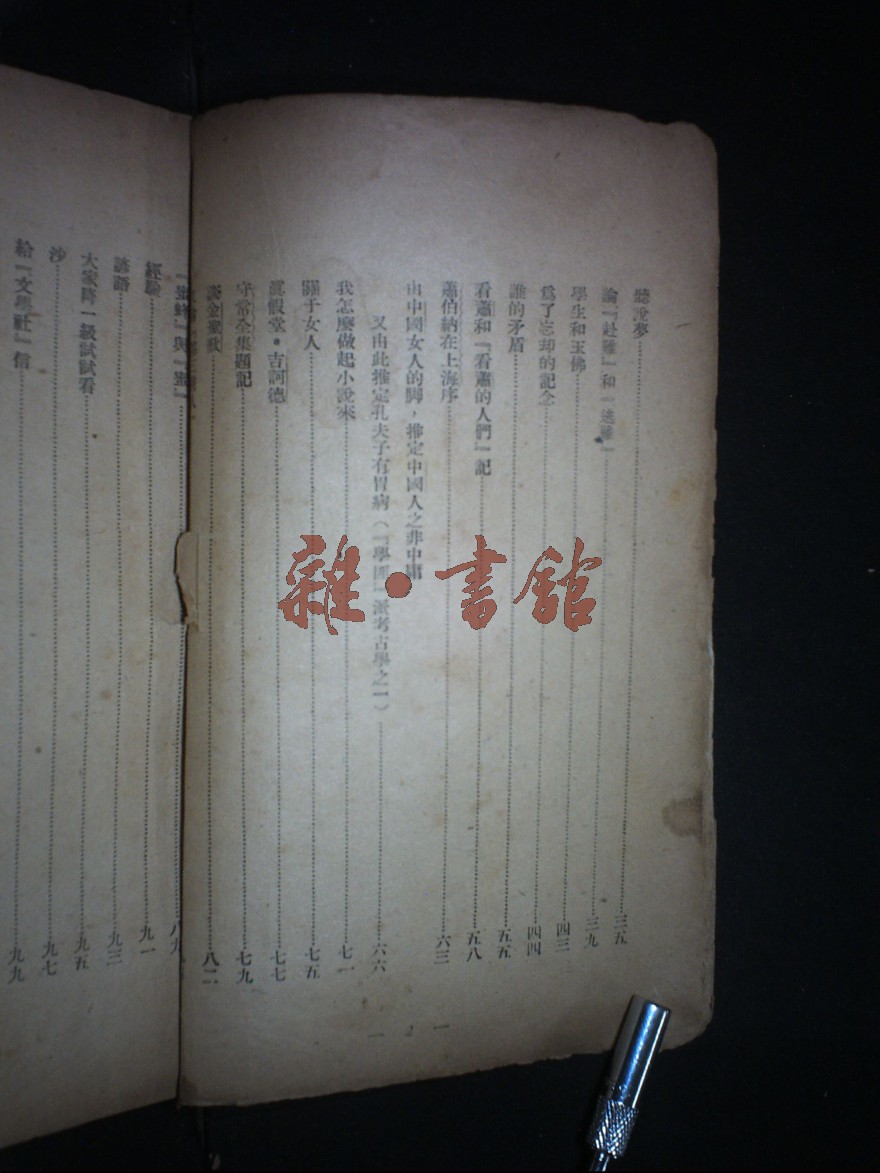 聽說夢……三五
論『赴難』和『逃難』……三九
學生和玉佛……四三
爲了忘却的記念……四四
誰的矛盾……五五
看蕭和『看蕭的人們』記……五八
蕭伯納在上海序……六三
由中國女人的脚，推定中國人之非中庸
又由此推定孔夫子有胃病（『學匪』派考古學之一）……六六
我怎麼做起小說來……七一
關于女人……七五
眞假堂·吉訶德……七七
守常全集題記……七九
談金聖歎……八二
『蜜蜂』與『蜜』……八九
經驗……九一
諺語……九三
大家降一級試試看……九五
沙……九七
給『文學社』信……九九
一 2 一
雜·書館